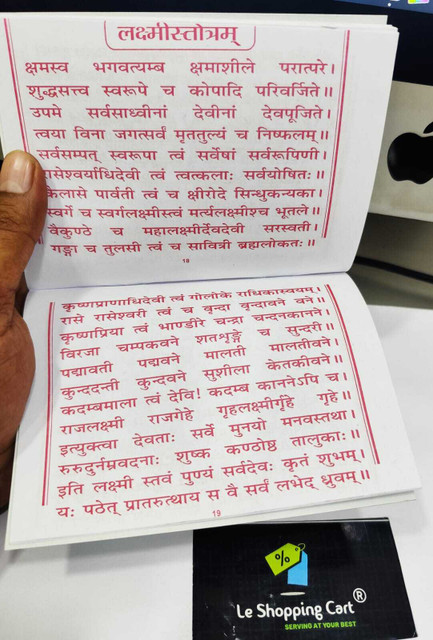 लक्ष्मीस्तोत्रम्
क्षमस्व भगवत्यम्ब क्षमाशीले परात्परे।
शुद्धसत्त्व स्वरूपे च कोपादि परिवर्जिते॥
उपमे सर्वसाध्वीनां देवीनां देवपूजिते।
त्वया विना जगत्सर्वं मृततुल्यं च निष्फलम्॥
सर्वसम्पत् स्वरूपा त्वं सर्वेषां सर्वरूपिणी।
रासेश्वर्याधिदेवी त्वं त्वत्कलाः सर्वयोषितः॥
कैलासे पार्वती त्वं च क्षीरोदे सिन्धुकन्यका।
स्वर्गे च स्वर्गलक्ष्मीस्त्वं मर्त्यलक्ष्मीश्च भूतले॥
वैकुण्ठे च महालक्ष्मीर्देवदेवी सरस्वती।
गङ्गा च तुलसी त्वं च सावित्री ब्रह्मलोकतः॥
18
कृष्णप्राणाधिदेवी त्वं गोलोके राधिकास्वयम्।
रासे रासेश्वरी त्वं च वृन्दा वृन्दावने वने॥
कृष्णप्रिया त्वं भाण्डीरे चन्द्रा चन्दनकानने।
विरजा चम्पकवने शतशृङ्गे च सुन्दरी॥
पद्मावती पद्मवने मालती मालतीवने।
कुन्ददन्ती कुन्दवने सुशीला केतकीवने॥
कदम्बमाला त्वं देवि! कदम्ब काननेऽपि च।
राजलक्ष्मी राजगेहे गृहलक्ष्मीर्गृहे गृहे॥
इत्युक्त्वा देवताः सर्वे मुनयो मनवस्तथा।
रुरुदुर्नम्रवदनाः शुष्क कण्ठोष्ठ तालुकाः॥
इति लक्ष्मी स्तवं पुण्यं सर्वदेवः कृतं शुभम्।
यः पठेत् प्रातरुत्थाय स वै सर्वं लभेद् ध्रुवम्॥
19
%
Le Shopping Cart®
SERVING AT YOUR BEST